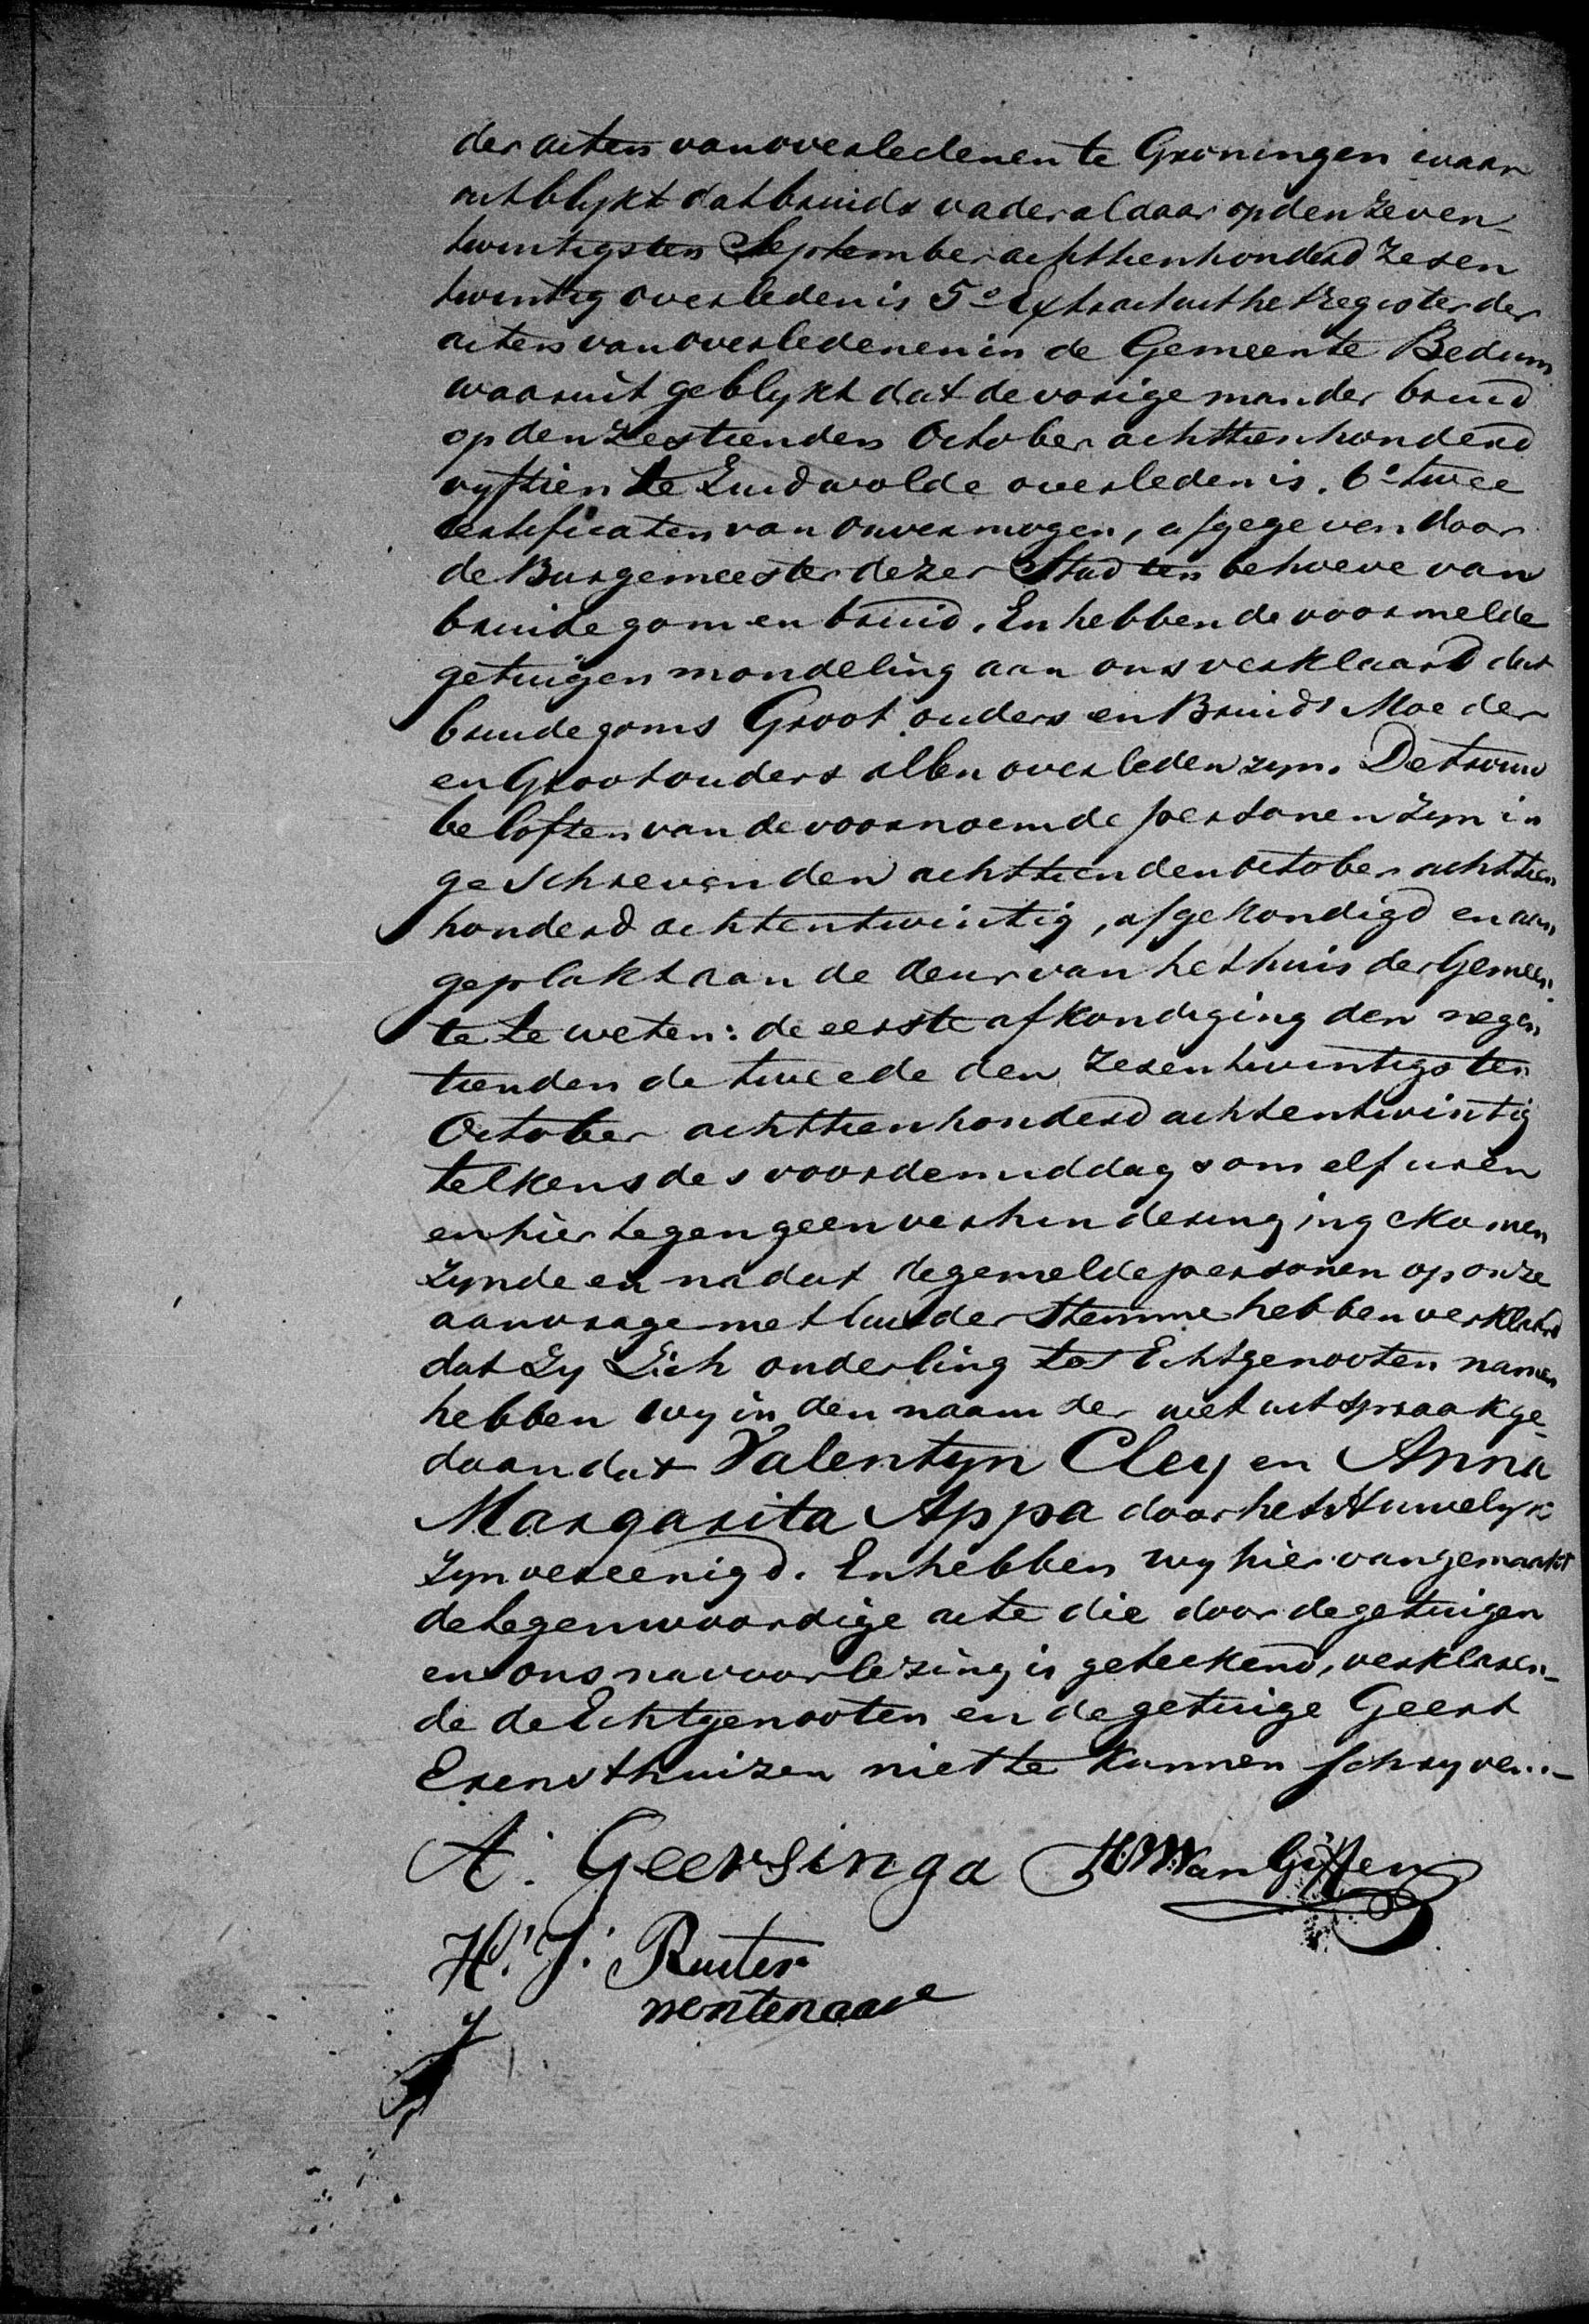 der acten van overledenen te Groningen waar
uit blykt dat bruids vader aldaar op den zeven
twintigsten September achttienhonderd zesen
twintig overleden is 5º Extract uit het register der
acten van overledenen in de Gemeente Bedum
waaruit geblykt dat de vorige man der bruid
op den zestienden October achttienhonderd
vyftien te Zuidwolde overleden is. 6º twee
certificaten van onvermogen, afgegeven door
de Burgemeester dezer Stad ten behoeve van
bruidegom en bruid. En hebben de voormelde
getuigen mondeling aan ons verklaard dat
bruidegoms Groot ouders en Bruids Moeder
en Grootouders allen overleden zyn. De trouw
beloften van de voornoemde personen zyn in
geschreven den achttienden October achttien
honderd achtentwintig, afgekondigd en aan
geplakt aan de deur van het huis der Gemeen
te te weten: de eerste afkondiging den negen
tienden de tweede den zesentwintigsten
October achttienhonderd achtentwintig
telkens des voordemiddags om elf uren
en hier tegen geen verhindering ingekomen
zynde en nadat de gemelde personen op onze
aanvrage met luider Stemme hebben verklaard
dat Zy Zich onderling tot Echtgenooten namen
hebben wy in den naam der wet uitspraak ge-
daan dat Valentyn Cley en Anna
Margarita Appa door het Huwelyk
zyn vereenigd. En hebben wy hier van gemaakt
de tegenwoordige acte die door de getuigen
en ons na voorlezing is geteekend, verklaren-
de de Echtgenooten en de getuige Geert
Erensthuizen niet te kunnen schryven.-
A. Geersinga H W Van Giffen
H. J. Ruiter
wentenaare